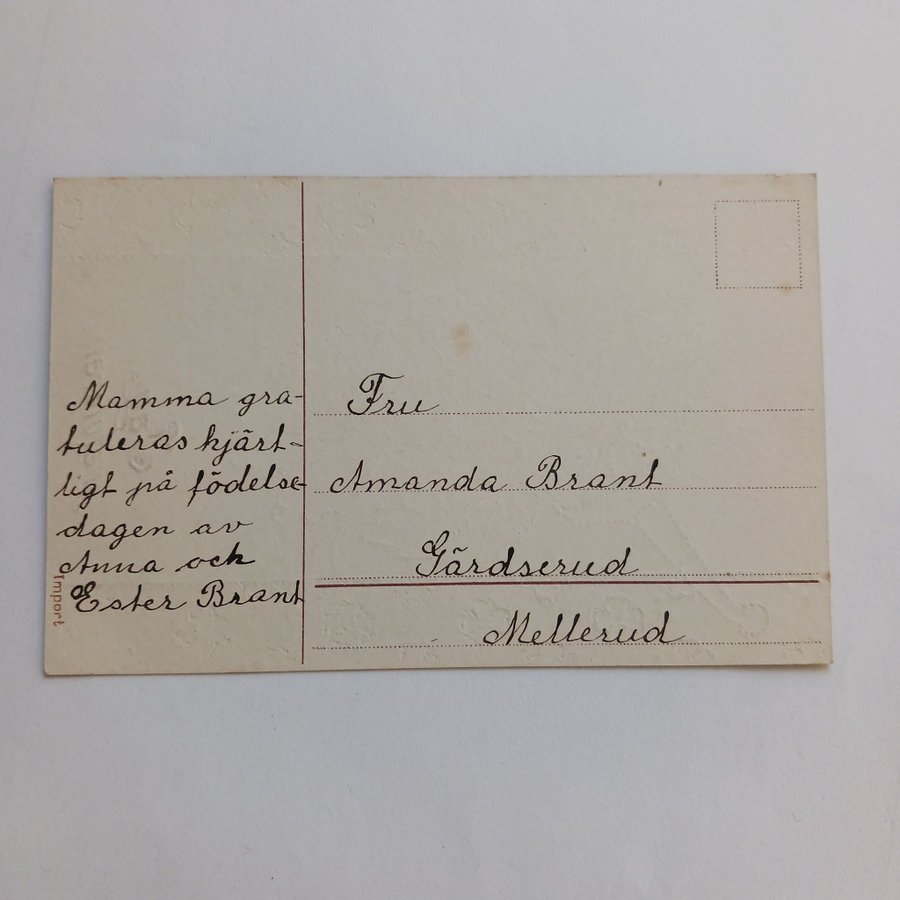 Mamma gra-
tuleras hjärt-
ligt på födelse-
dagen av
Anna och
Ester Brant
Import
Fru
Amanda Brant
Gärdserud
Mellerud